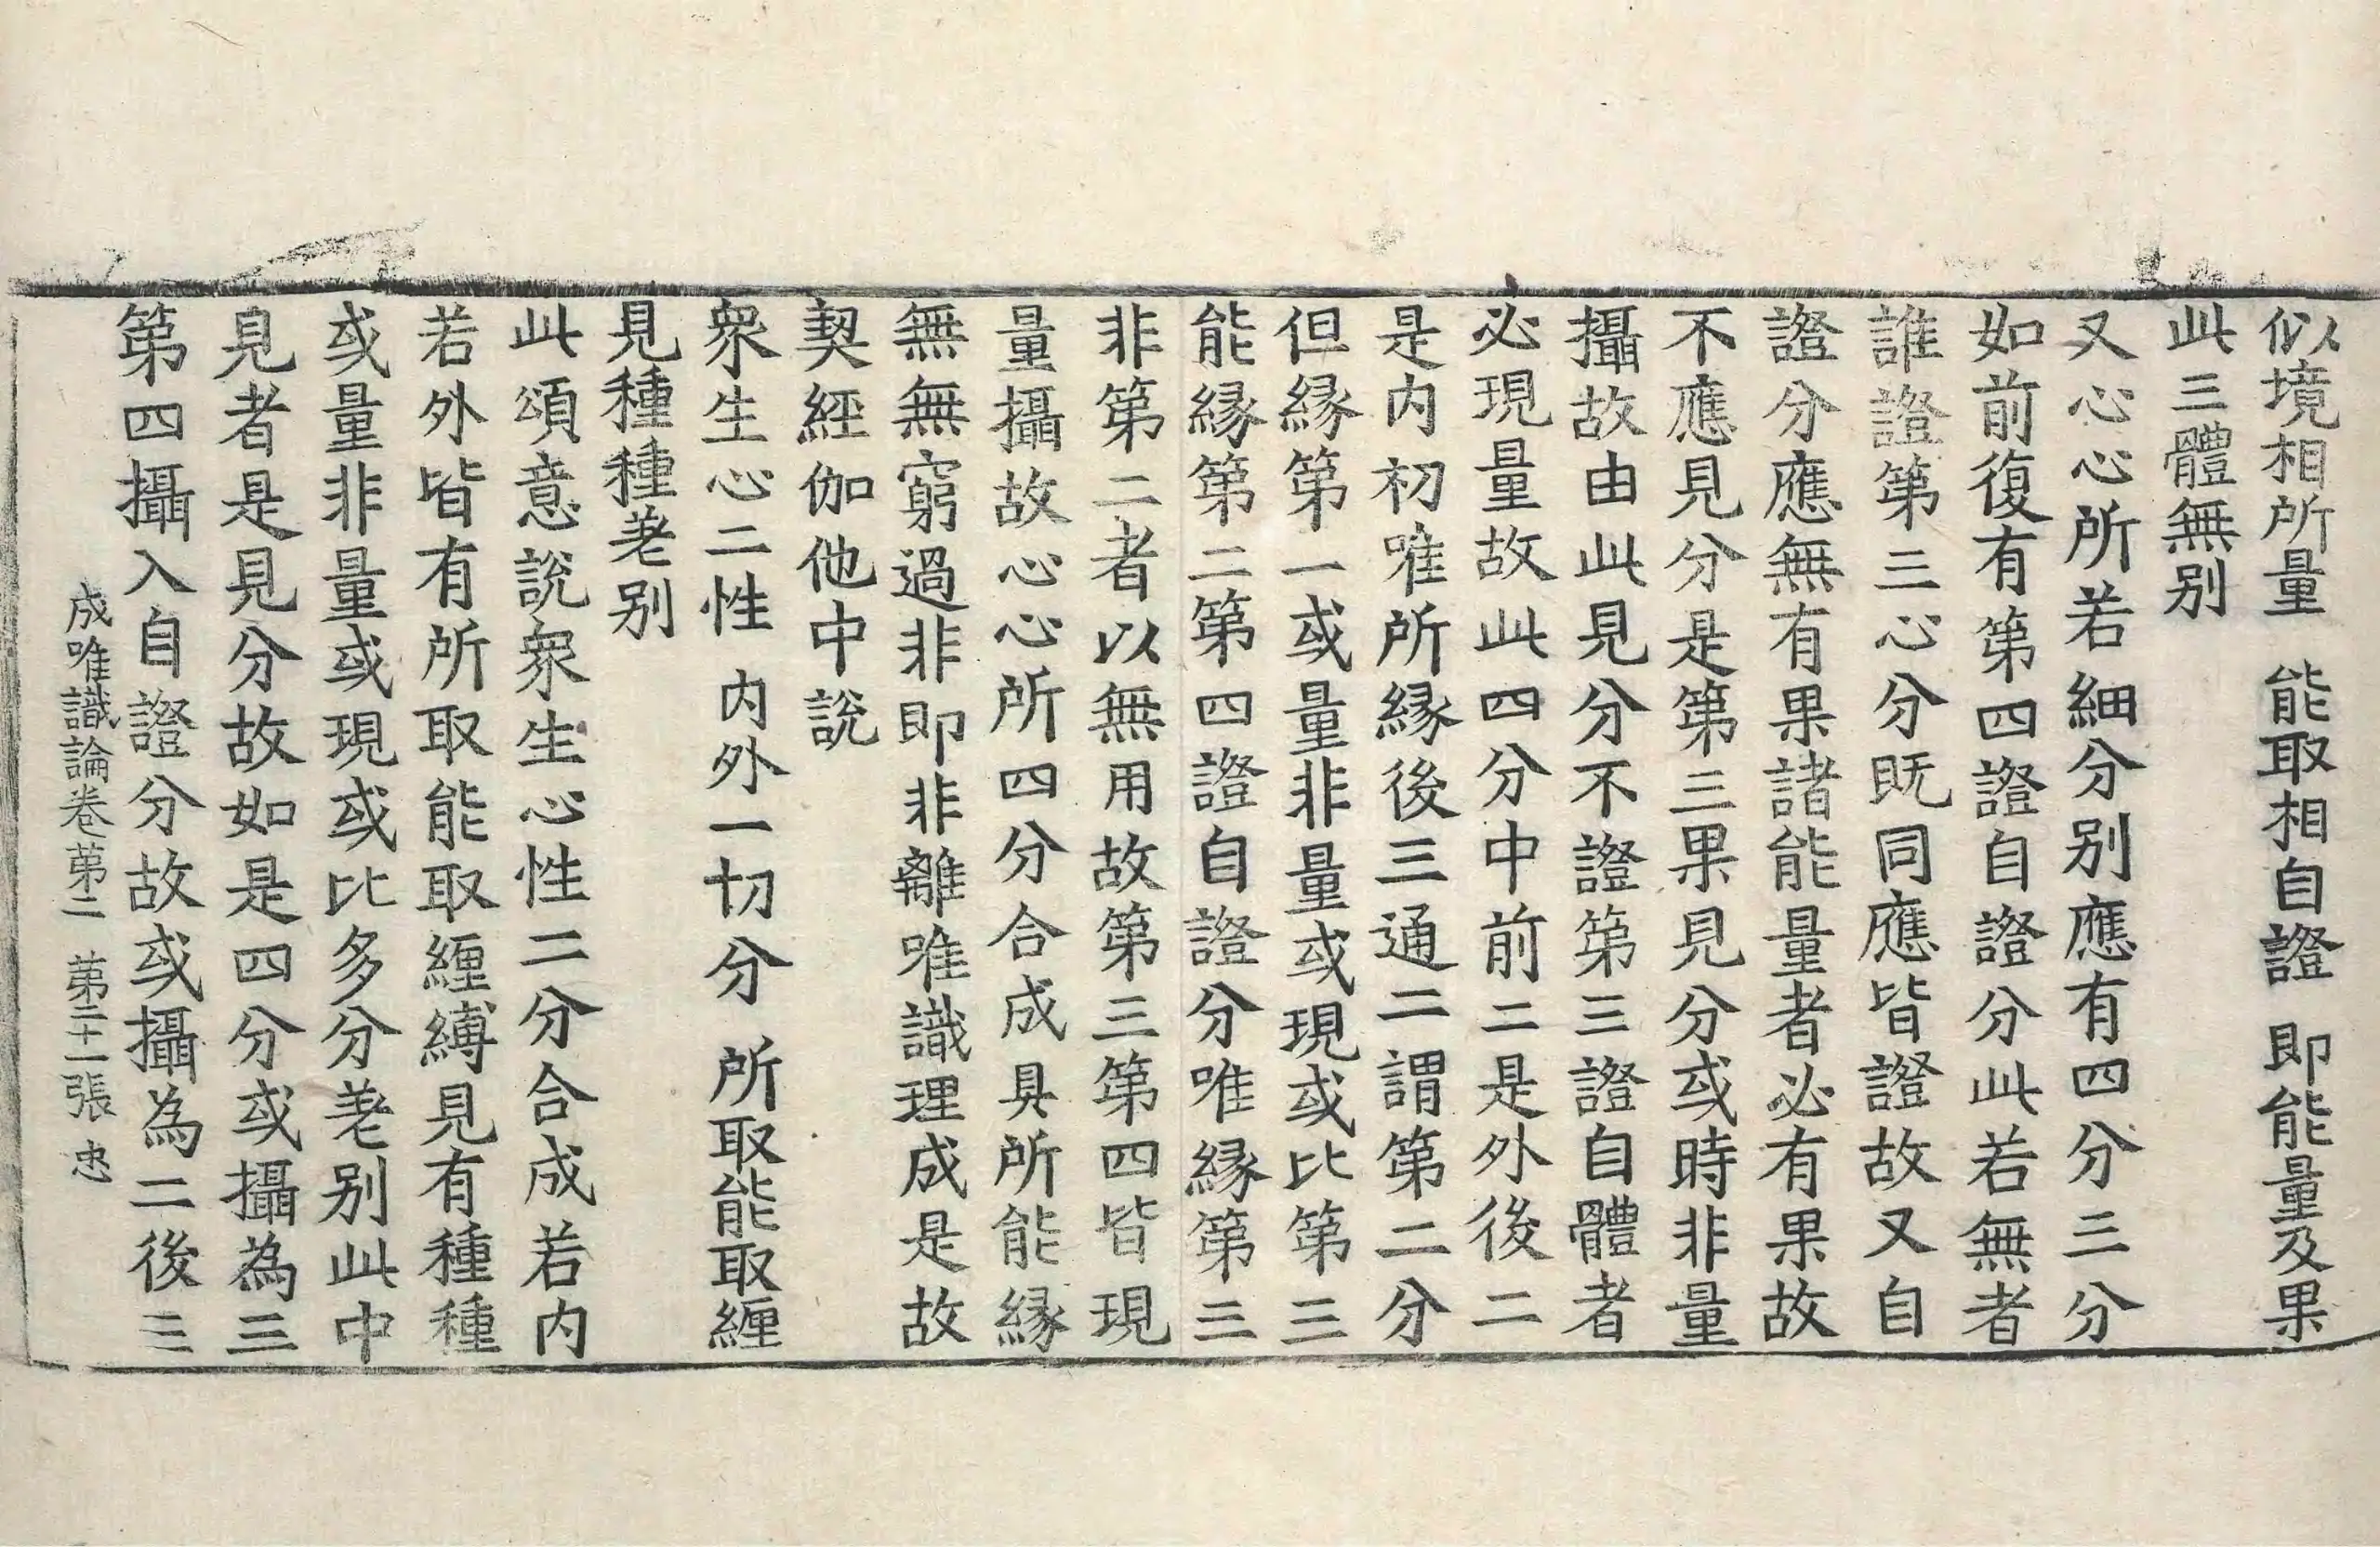 似境相所量　能取相自證　即能量及果
此三體無别
又心心所若細分别應有四分三分
如前復有第四證自證分此若無者
誰證第三心分既同應皆證故又自
證分應無有果諸能量者必有果故
不應見分是第三果見分或時非量
攝故由此見分不證第三證自體者
必現量故此四分中前二是外後二
是内初唯所縁後三通二謂第二分
但縁第一或量非量或現或比第三
能縁第二第四證自證分唯縁第三
非第二者以無用故第三第四皆現
量攝故心心所四分合成具所能縁
無無窮過非即非離唯識理成是故
契經伽他中説
衆生心二性　内外一切分　所取能取纒
見種種差别
此頌意説衆生心性二分合成若内
若外皆有所取能取纒縛見有種種
或量非量或現或比多分差别此中
見者是見分故如是四分或攝為三
第四攝入自證分故或攝為二後三
成唯識論卷第二　第二十一張　忠